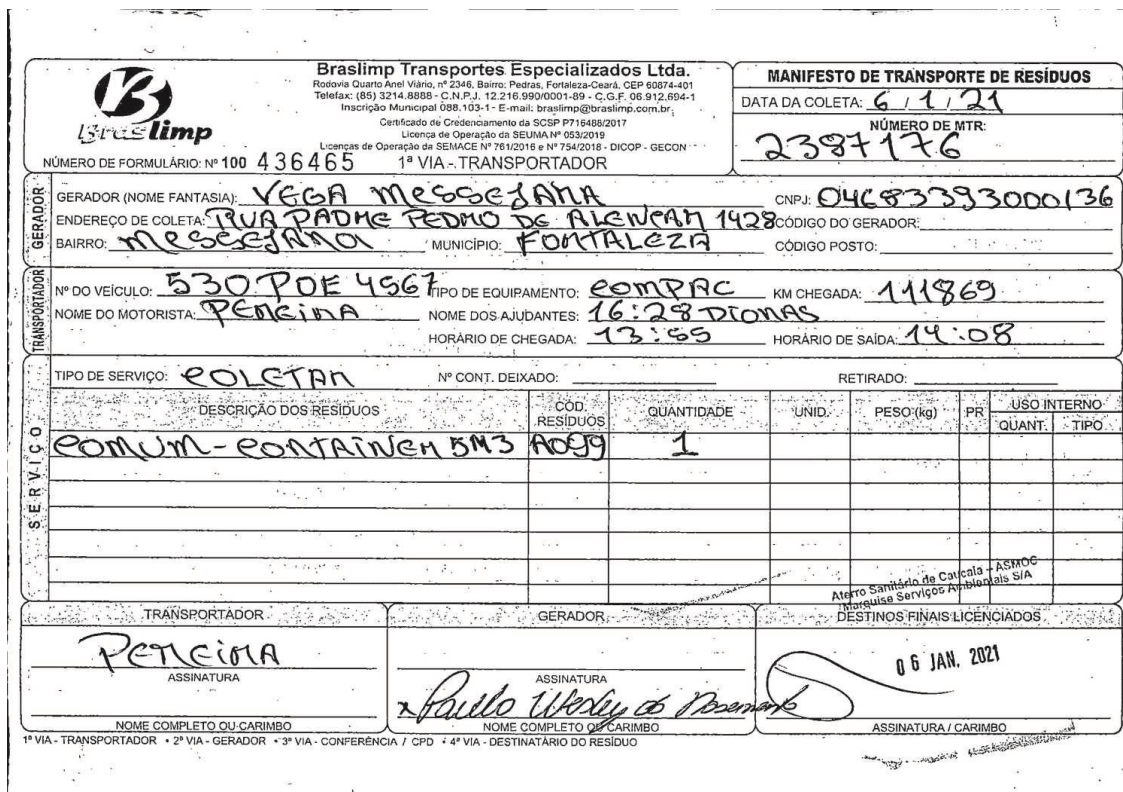 Braslimp Transportes Especializados Ltda.
Rodovia Quarto Anel Viário, nº 2346, Bairro: Pedras, Fortaleza-Ceará, CEP 60874-401
Telefax: (85) 3214.8888 - C.N.P.J. 12.216.990/0001-89 - C.G.F. 06.912.694-1
Inscrição Municipal 088.103-1 - E-mail: braslimp@braslimp.com.br
Certificado de Credenciamento da SCSP P716488/2017
Licença de Operação da SEUMA Nº 053/2019
Licenças de Operação da SEMACE Nº 761/2016 e Nº 754/2018 - DICOP - GECON
Braslimp
NÚMERO DE FORMULÁRIO: Nº 100 436465 1ª VIA - TRANSPORTADOR
MANIFESTO DE TRANSPORTE DE RESÍDUOS
DATA DA COLETA: 6 / 1 / 21
NÚMERO DE MTR:
2387176
GERADOR
GERADOR (NOME FANTASIA): VEGA MESSEJANA CNPJ: 04683393000136
ENDEREÇO DE COLETA: RUA PADRE PEDRO DE ALENCAR 1428 CÓDIGO DO GERADOR:
BAIRRO: MESSEJANA MUNICÍPIO: FORTALEZA CÓDIGO POSTO:
TRANSPORTADOR
Nº DO VEÍCULO: 530 POE 4567 TIPO DE EQUIPAMENTO: COMPAC KM CHEGADA: 111869
NOME DO MOTORISTA: PEREIRA NOME DOS AJUDANTES: 16:28 DIONAS
HORÁRIO DE CHEGADA: 13:55 HORÁRIO DE SAÍDA: 14:08
SERVIÇO
TIPO DE SERVIÇO: COLETAR Nº CONT. DEIXADO: RETIRADO:
DESCRIÇÃO DOS RESÍDUOS CÓD. RESÍDUOS QUANTIDADE UNID. PESO (kg) PR USO INTERNO QUANT. TIPO
COMUM - CONTAINER 5M3 A099 1
Aterro Sanitário de Caucaia - ASMOC
Marquise Serviços Ambientais S/A
TRANSPORTADOR GERADOR DESTINOS FINAIS LICENCIADOS
PEREIRA
06 JAN. 2021
ASSINATURA ASSINATURA
x Paullo Wesley do
NOME COMPLETO OU CARIMBO NOME COMPLETO OU CARIMBO ASSINATURA / CARIMBO
1ª VIA - TRANSPORTADOR • 2ª VIA - GERADOR • 3ª VIA - CONFERÊNCIA / CPD • 4ª VIA - DESTINATÁRIO DO RESÍDUO